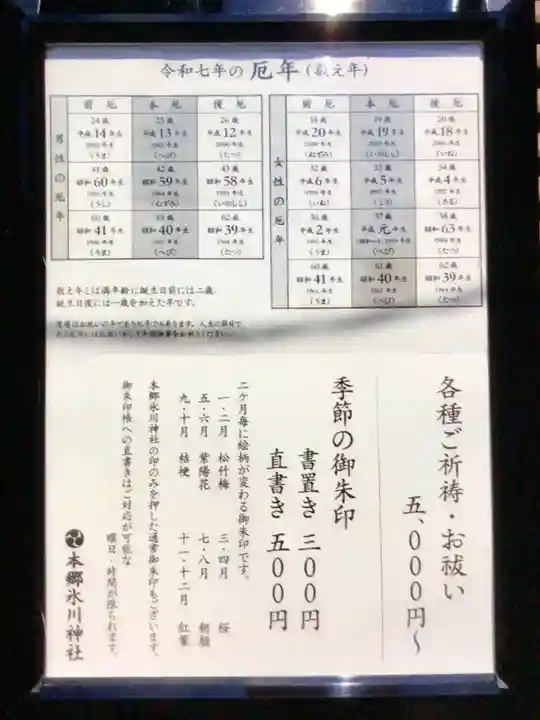 令和七年の 厄年 (数え年)
男性の厄年
前厄 本厄 後厄
24歳 25歳 26歳
平成14年生 平成13年生 平成12年生
2002年生 2001年生 2000年生
(うま) (へび) (たつ)
41歳 42歳 43歳
昭和60年生 昭和59年生 昭和58年生
1985年生 1984年生 1983年生
(うし) (ねずみ) (いのしし)
60歳 61歳 62歳
昭和41年生 昭和40年生 昭和39年生
1966年生 1965年生 1964年生
(うま) (へび) (たつ)
女性の厄年
前厄 本厄 後厄
18歳 19歳 20歳
平成20年生 平成19年生 平成18年生
2008年生 2007年生 2006年生
(ねずみ) (いのしし) (いぬ)
32歳 33歳 34歳
平成6年生 平成5年生 平成4年生
1994年生 1993年生 1992年生
(いぬ) (とり) (さる)
36歳 37歳 38歳
平成2年生 平成元年生 昭和63年生
1990年生 1988年生
(うま) (へび) (たつ)
60歳 61歳 62歳
昭和41年生 昭和40年生 昭和39年生
1966年生 1965年生 1964年生
(うま) (へび) (たつ)
数え年とは満年齢に誕生日前には二歳、
誕生日後には一歳を加えた年です。
各種ご祈祷・お祓い
五、〇〇〇円〜
季節の御朱印
書置き 三〇〇円
直書き 五〇〇円
二ヶ月毎に絵柄が変わる御朱印です。
一・二月 松竹梅 三・四月 桜
五・六月 紫陽花 七・八月 朝顔
九・十月 桔梗 十一・十二月 紅葉
本郷氷川神社の印のみを押した通常御朱印もございます。
御朱印帳への直書きはご対応が可能な
曜日・時間が限られます。
本郷氷川神社